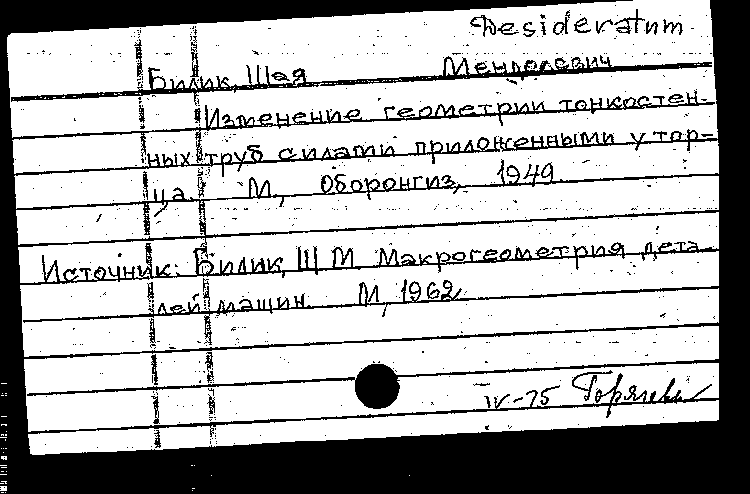 Desideratum
Билик, Шая Менделевич
Изменение геометрии тонкостен-
ных труб силами приложенными у тор-
ца. М., Оборонгиз, 1949.
Источник: Билик, Ш. М. Макрогеометрия дета-
лей машин. М., 1962
IV-75